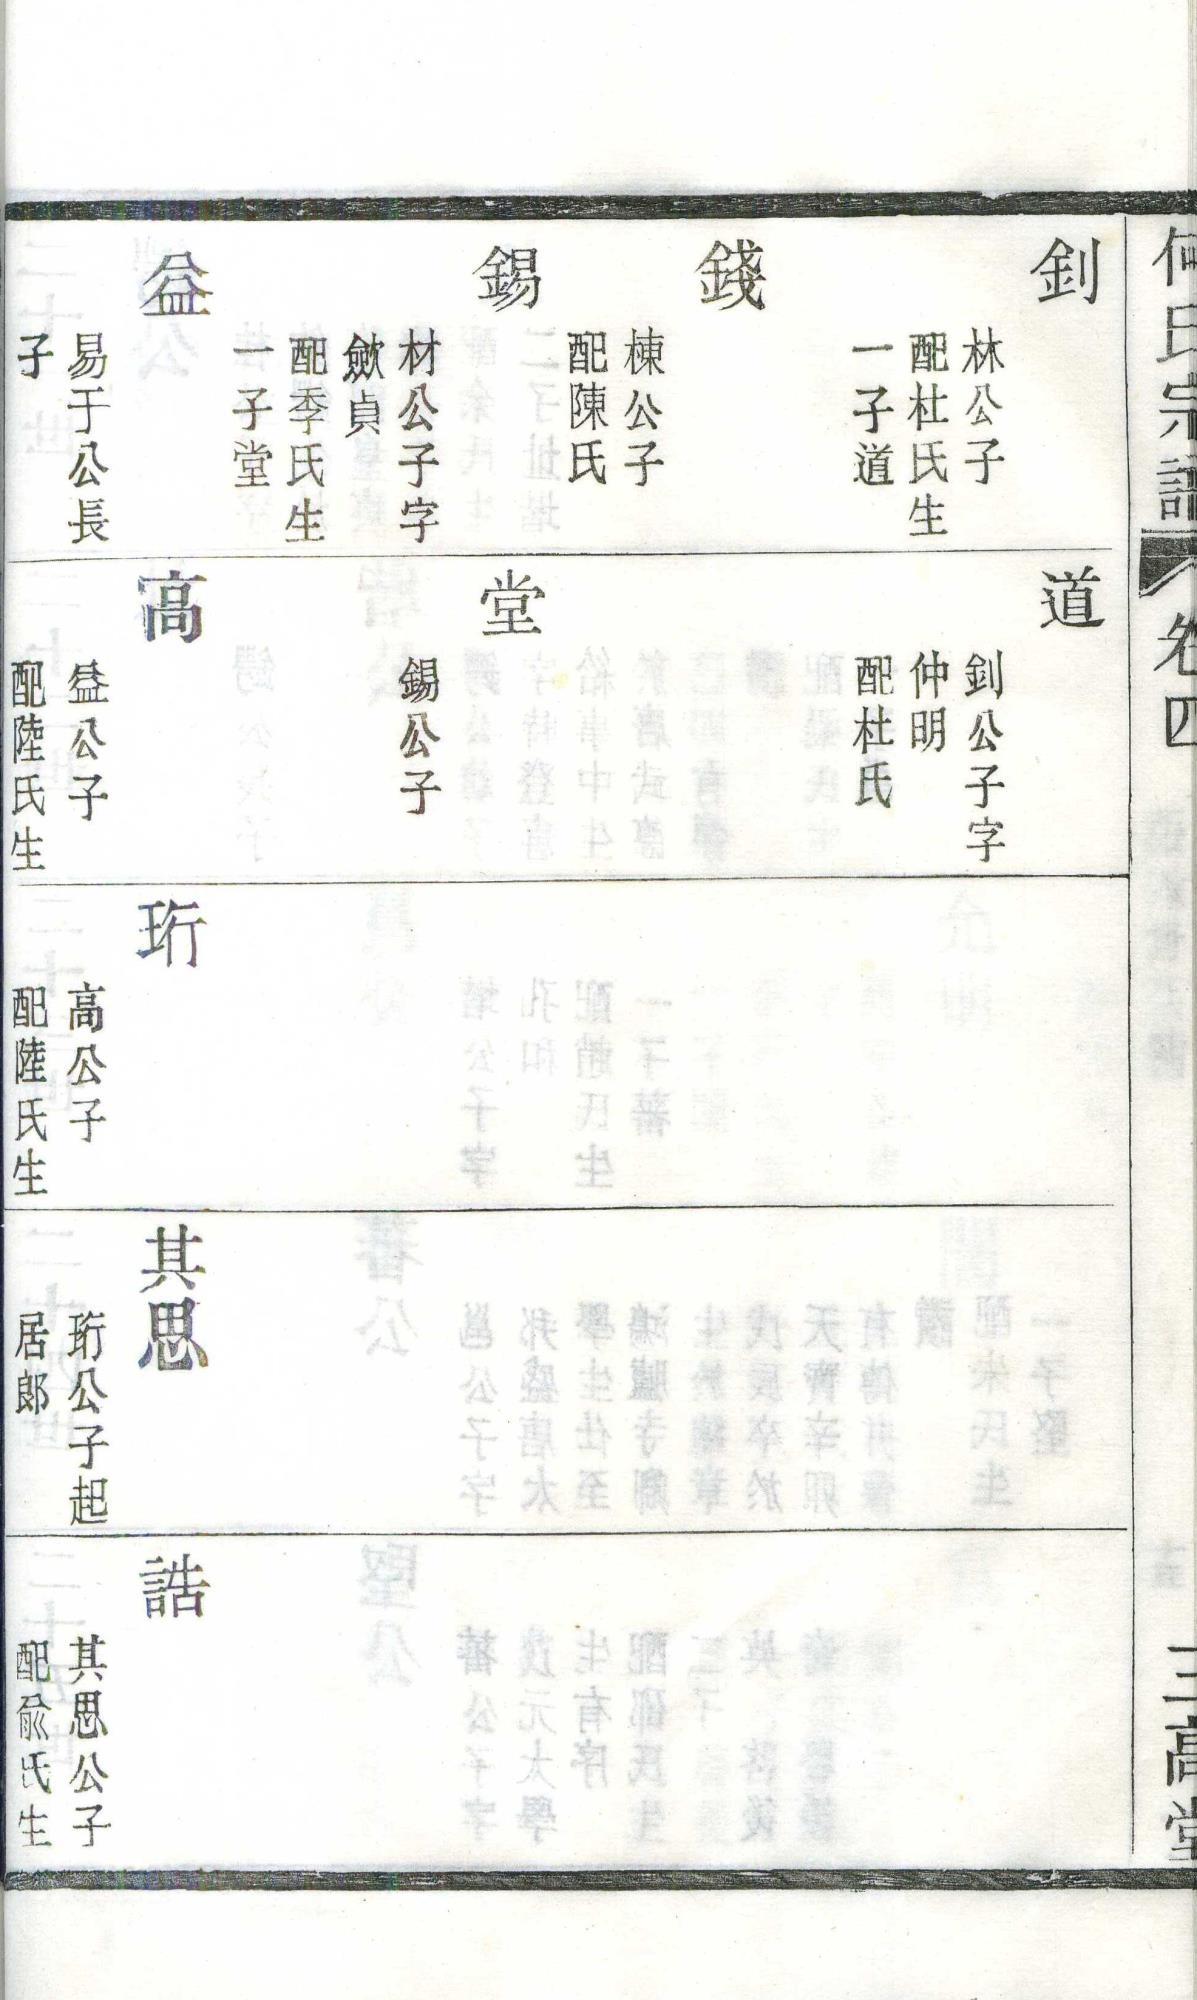 何氏宗譜
卷四
三高堂
釗
林公子
配杜氏生
一子道
錢
棟公子
配陳氏
錫
材公子字
歛貞
配季氏生
一子堂
益
易于公長
子
道
釗公子字
仲明
配杜氏
堂
錫公子
高
益公子
配陸氏生
珩
高公子
配陸氏生
其思
珩公子起
居郎
誥
其思公子
配俞氏生